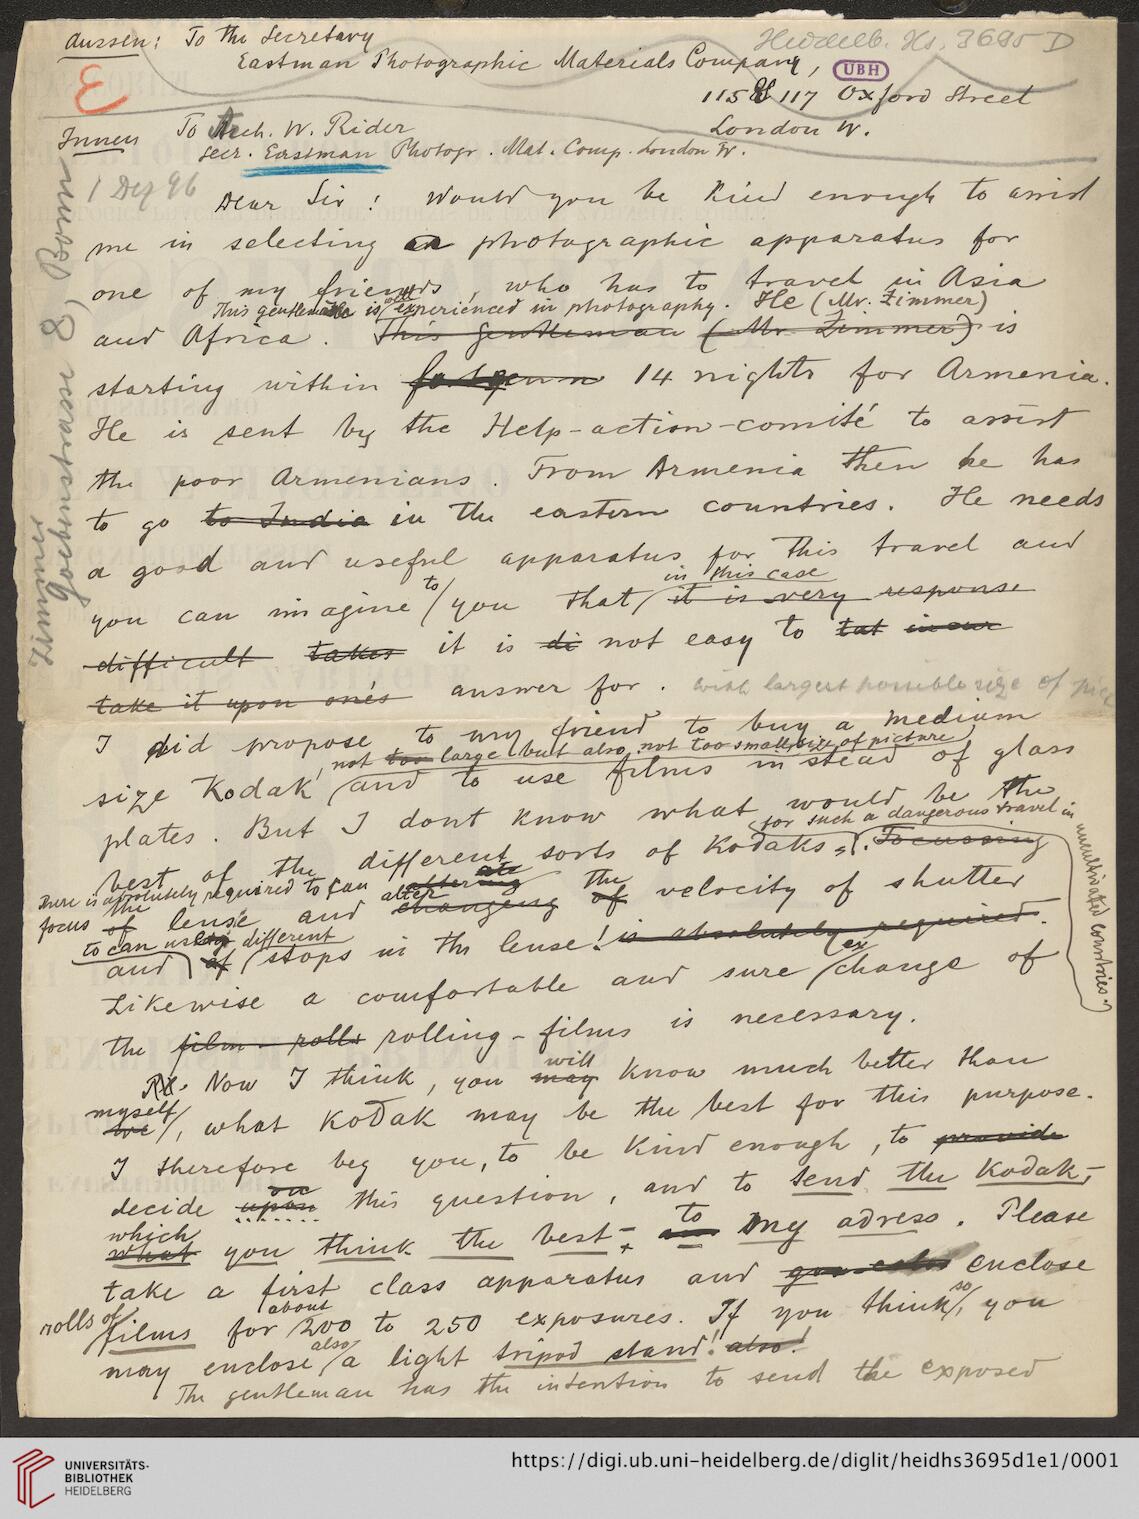 Aussen: To the Secretary
Eastman Photographic Materials Company,
Heidelb. Hs. 3695 D
UBH
115 & 117 Oxford Street
London W.
E
Innen To Arch. W. Rider
Secr. Eastman Photogr. Mat. Comp. London W.
1 Dez 96
Dear Sir! Would you be kind enough to assist
me in selecting a photographic apparatus for
one of my friends, who has to travel in Asia
This gentleman is well experienced in photography. He (Mr. Zimmer)
and Africa. This gentleman (Mr. Zimmer) is
starting within 14 nights for Armenia.
He is sent by the Help-action-comité to assist
the poor Armenians. From Armenia then he has
to go to India in the eastern countries. He needs
a good and useful apparatus for this travel and
in this case
you can imagine to you that it is very response
difficult takes it is di not easy to tat
take it upon one's answer for. with largest possible size of
I did propose to my friend to buy a medium
not too large but also not too small size of picture
size Kodak and to use films in stead of glass
plates. But I dont know what would be the
for such a dangerous travel in
uncultivated countries.
best of the different sorts of Kodaks. Focussing
There is absolutely required to can
altering
focus the of lense and alter changeing the of velocity of shutter
to can use different
and of stops in the lense! is absolutely required.
Likewise a comfortable and sure exchange of
the film-rolls rolling-films is necessary.
Now I think, you will may know much better than
myself, what Kodak may be the best for this purpose.
I therefore beg you, to be kind enough, to provide
decide on upon this question, and to send the Kodak,
which what you think the best, to my adress. Please
take a first class apparatus and enclose
rolls of films for about 200 to 250 exposures. If you think so, you
may enclose also a light tripod stand! also!
The gentleman has the intention to send the exposed
Zimmer
Goebenstrasse 8, Bonn
UNIVERSITÄTS-
BIBLIOTHEK
HEIDELBERG
https://digi.ub.uni-heidelberg.de/diglit/heidhs3695d1e1/0001